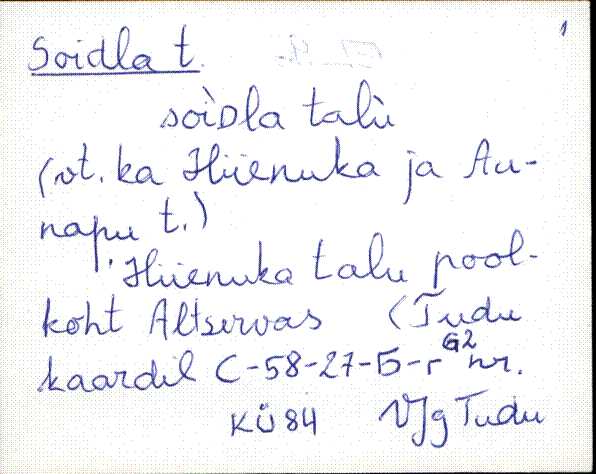 1
Soidla t.
soìDla talù
(vt. ka Hiienuka ja Au-
napu t.)
'Hiienuka talu pool-
koht Altservas (Tudu
kaardil C-58-27-Б-г G2 nr.
KÜ 84 VJg Tudu